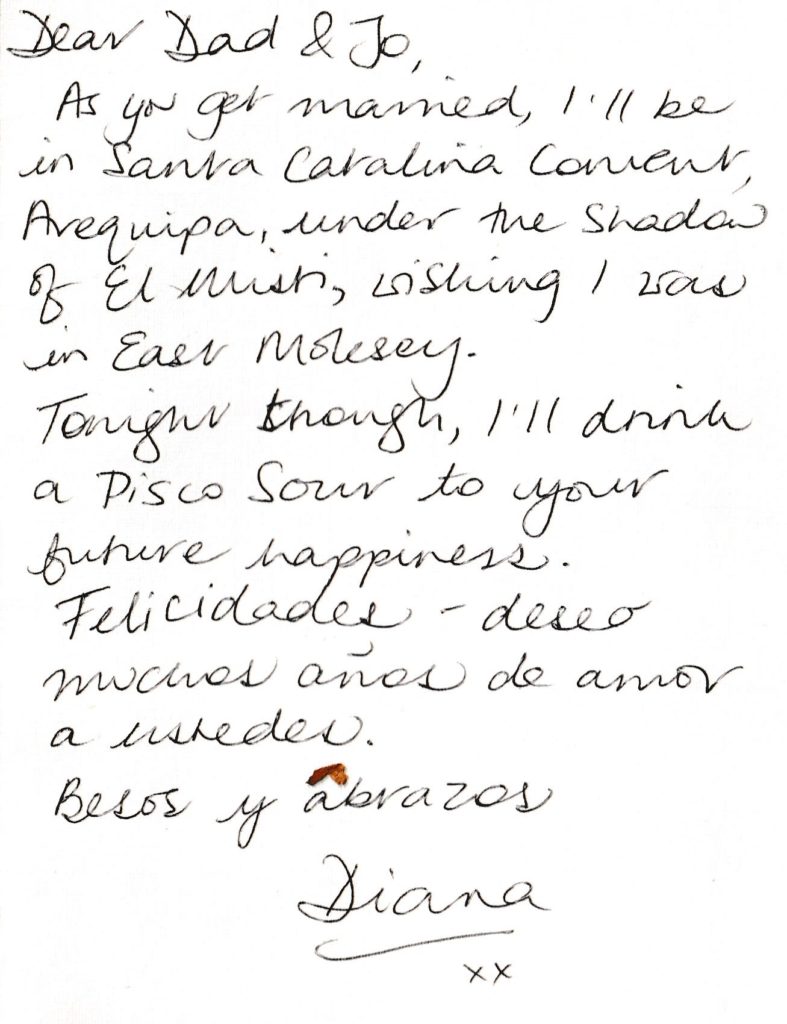 Dear Dad & Jo,
As you get married, I'll be
in Santa Catalina Convent,
Arequipa, under the shadow
of El Misti, wishing I was
in East Molesey.
Tonight though, I'll drink
a Pisco Sour to your
future happiness.
Felicidades - deseo
muchos años de amor
a ustedes.
Besos y abrazos
Diana
xx